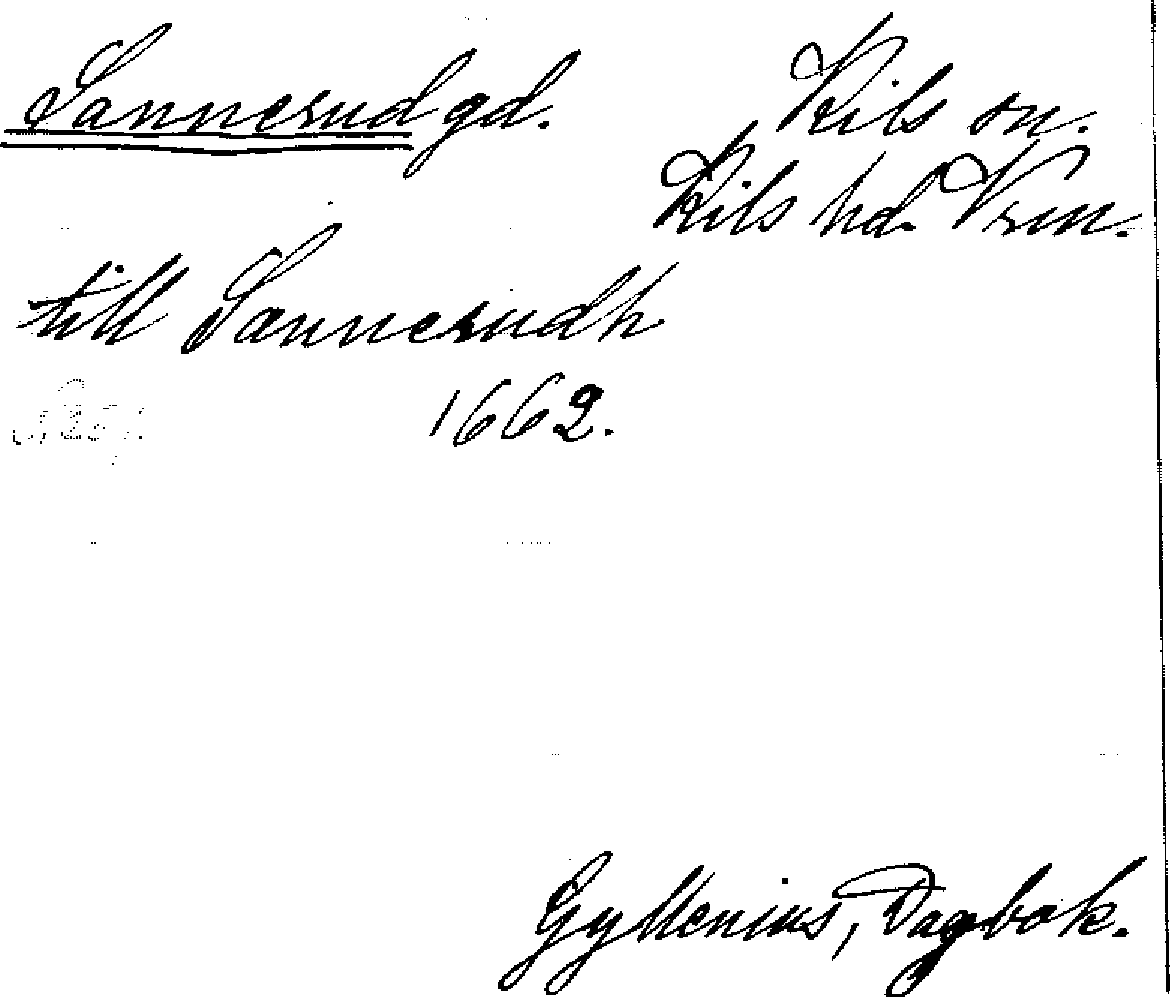 Sannerud gd.
Kils sn.
Kils hd. Vrm.
till Sannerudh
1662.
Gyllenius, Dagbok.